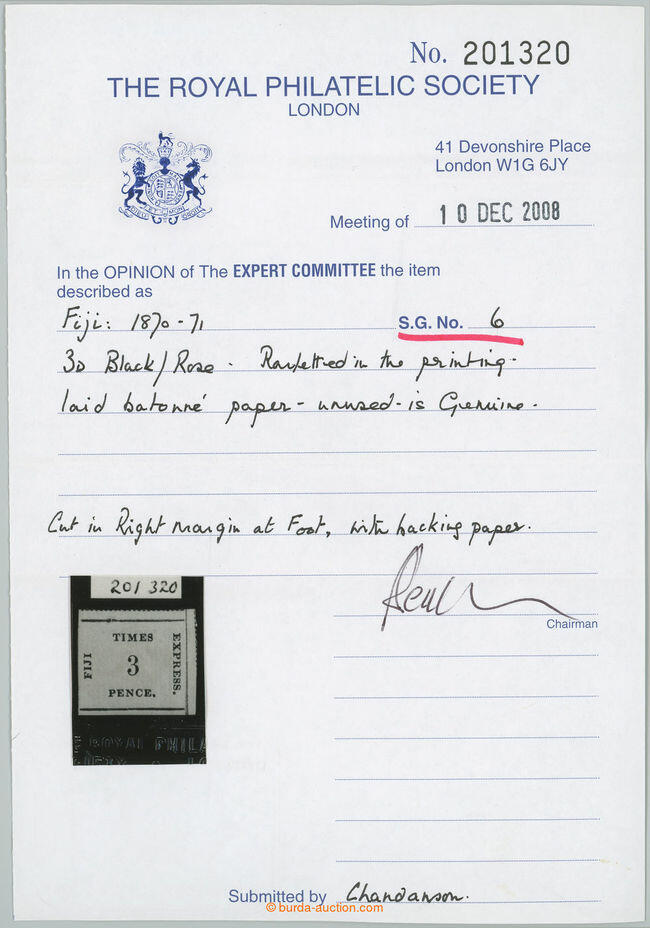 No. 201320
THE ROYAL PHILATELIC SOCIETY
LONDON
41 Devonshire Place
London W1G 6JY
Meeting of 10 DEC 2008
In the OPINION of The EXPERT COMMITTEE the item
described as
Fiji: 1870-71 S.G. No. 6
3D Black/Rose - Rouletted in the printing -
laid batonné paper - unused - is Genuine.
Cut in Right margin at Foot, with backing paper.
Chairman
201 320
TIMES
FIJI 3 EXPRESS.
PENCE.
ROYAL PHILA
Submitted by Chandanson.
© burda-auction.com